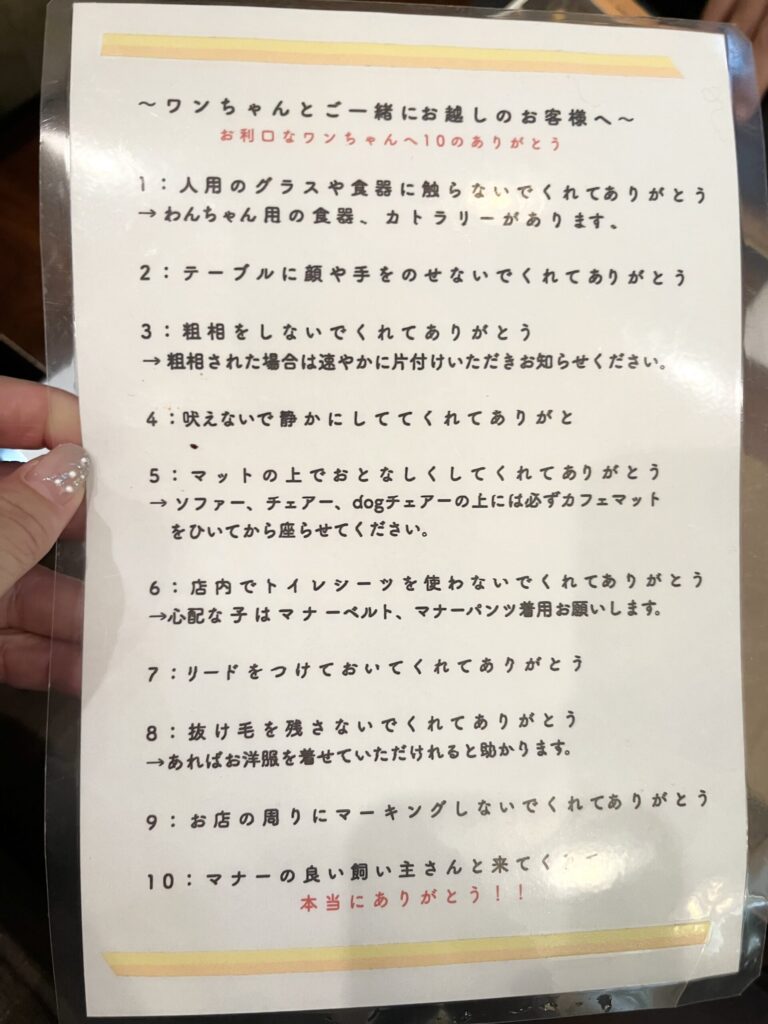 ～ワンちゃんとご一緒にお越しのお客様へ～
お利口なワンちゃんへ10のありがとう
1：人用のグラスや食器に触らないでくれてありがとう
→わんちゃん用の食器、カトラリーがあります。
2：テーブルに顔や手をのせないでくれてありがとう
3：粗相をしないでくれてありがとう
→粗相された場合は速やかに片付けいただきお知らせください。
4：吠えないで静かにしててくれてありがと
5：マットの上でおとなしくしてくれてありがとう
→ソファー、チェアー、dogチェアーの上には必ずカフェマット
をひいてから座らせてください。
6：店内でトイレシーツを使わないでくれてありがとう
→心配な子はマナーベルト、マナーパンツ着用お願いします。
7：リードをつけておいてくれてありがとう
8：抜け毛を残さないでくれてありがとう
→あればお洋服を着せていただけれると助かります。
9：お店の周りにマーキングしないでくれてありがとう
10：マナーの良い飼い主さんと来てく
本当にありがとう！！